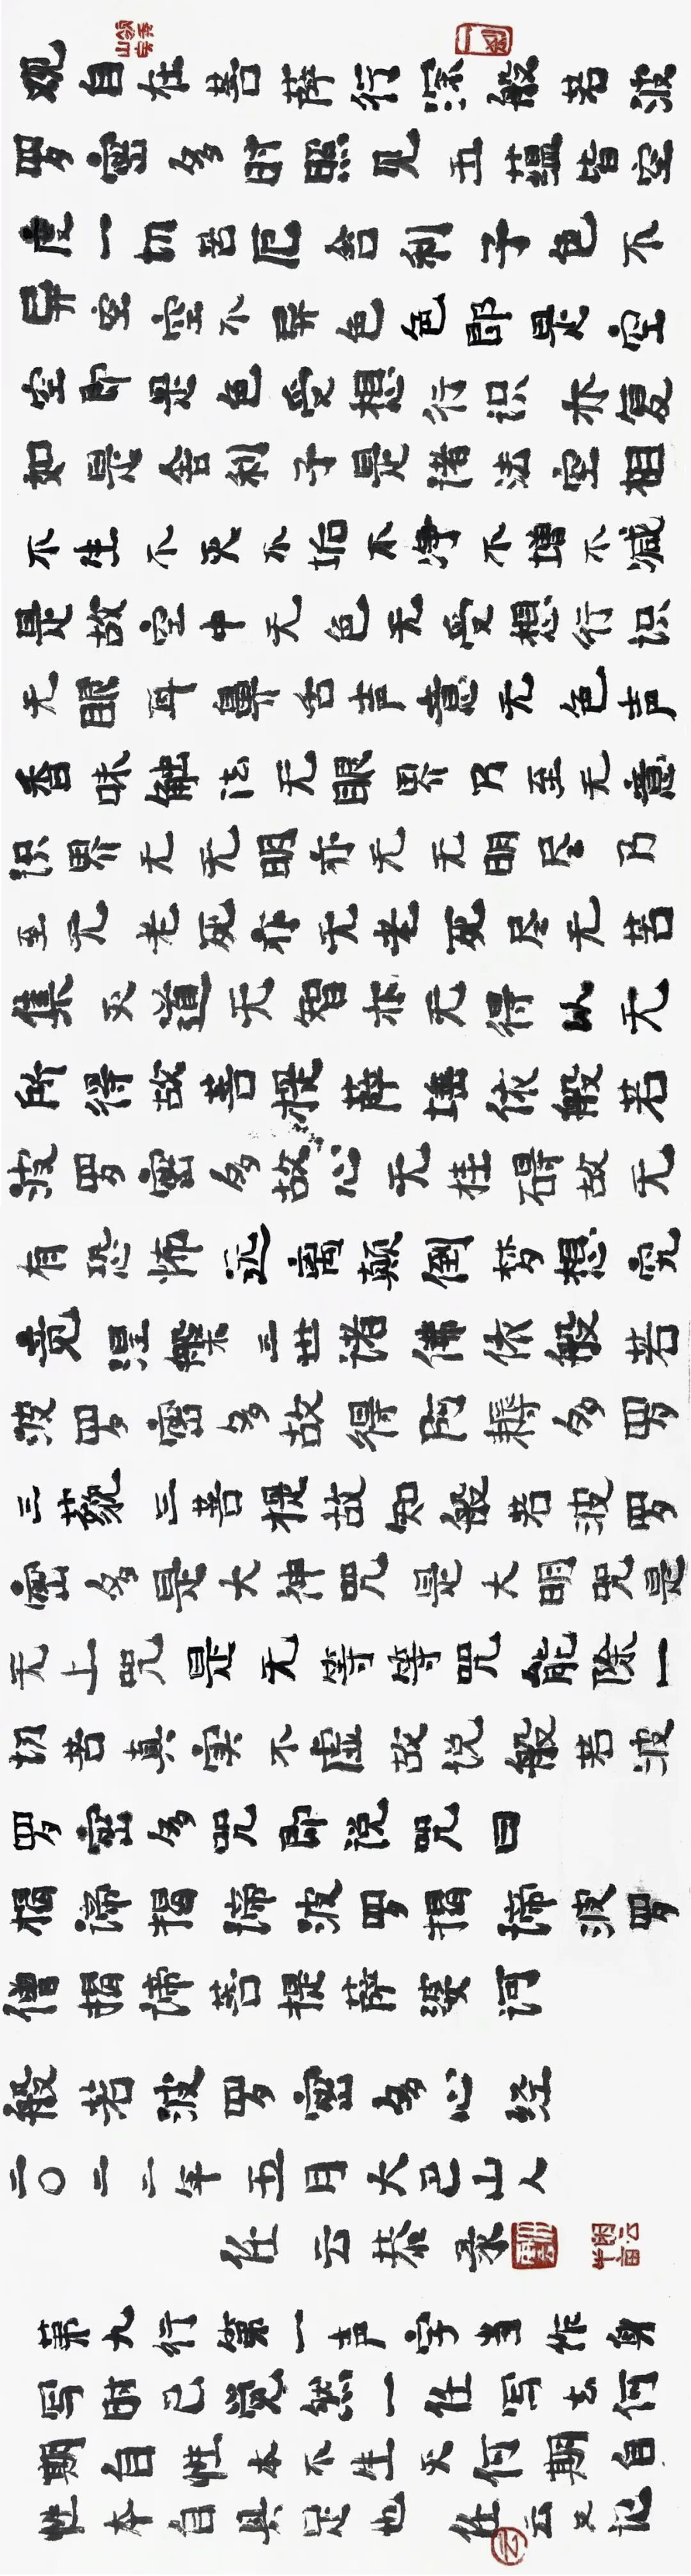 观自在菩萨行深般若波
罗密多时照见五蕴皆空
度一切苦厄舍利子色不
异空空不异色色即是空
空即是色受想行识亦复
如是舍利子是诸法空相
不生不灭不垢不净不增不减
是故空中无色无受想行识
无眼耳鼻舌声意无色声
香味触法无眼界乃至无意
识界无无明亦无无明尽乃
至无老死亦无老死尽无苦
集灭道无智亦无得以无
所得故菩提萨埵依般若
波罗密多故心无挂碍故无
有恐怖远离颠倒梦想究
竟涅槃三世诸佛依般若
波罗密多故得阿耨多罗
三藐三菩提故知般若波罗
密多是大神咒是大明咒是
无上咒是无等等咒能除一
切苦真实不虚故说般若波
罗密多咒即说咒曰
揭谛揭谛波罗揭谛波罗
僧揭谛菩提萨婆诃
般若波罗密多心经
二〇二二年五月大已山人
任云恭录
第九行第一声字当作身
写时已觉然一任写去何
期自性本不生灭何期自
性本自具足也 任云又记